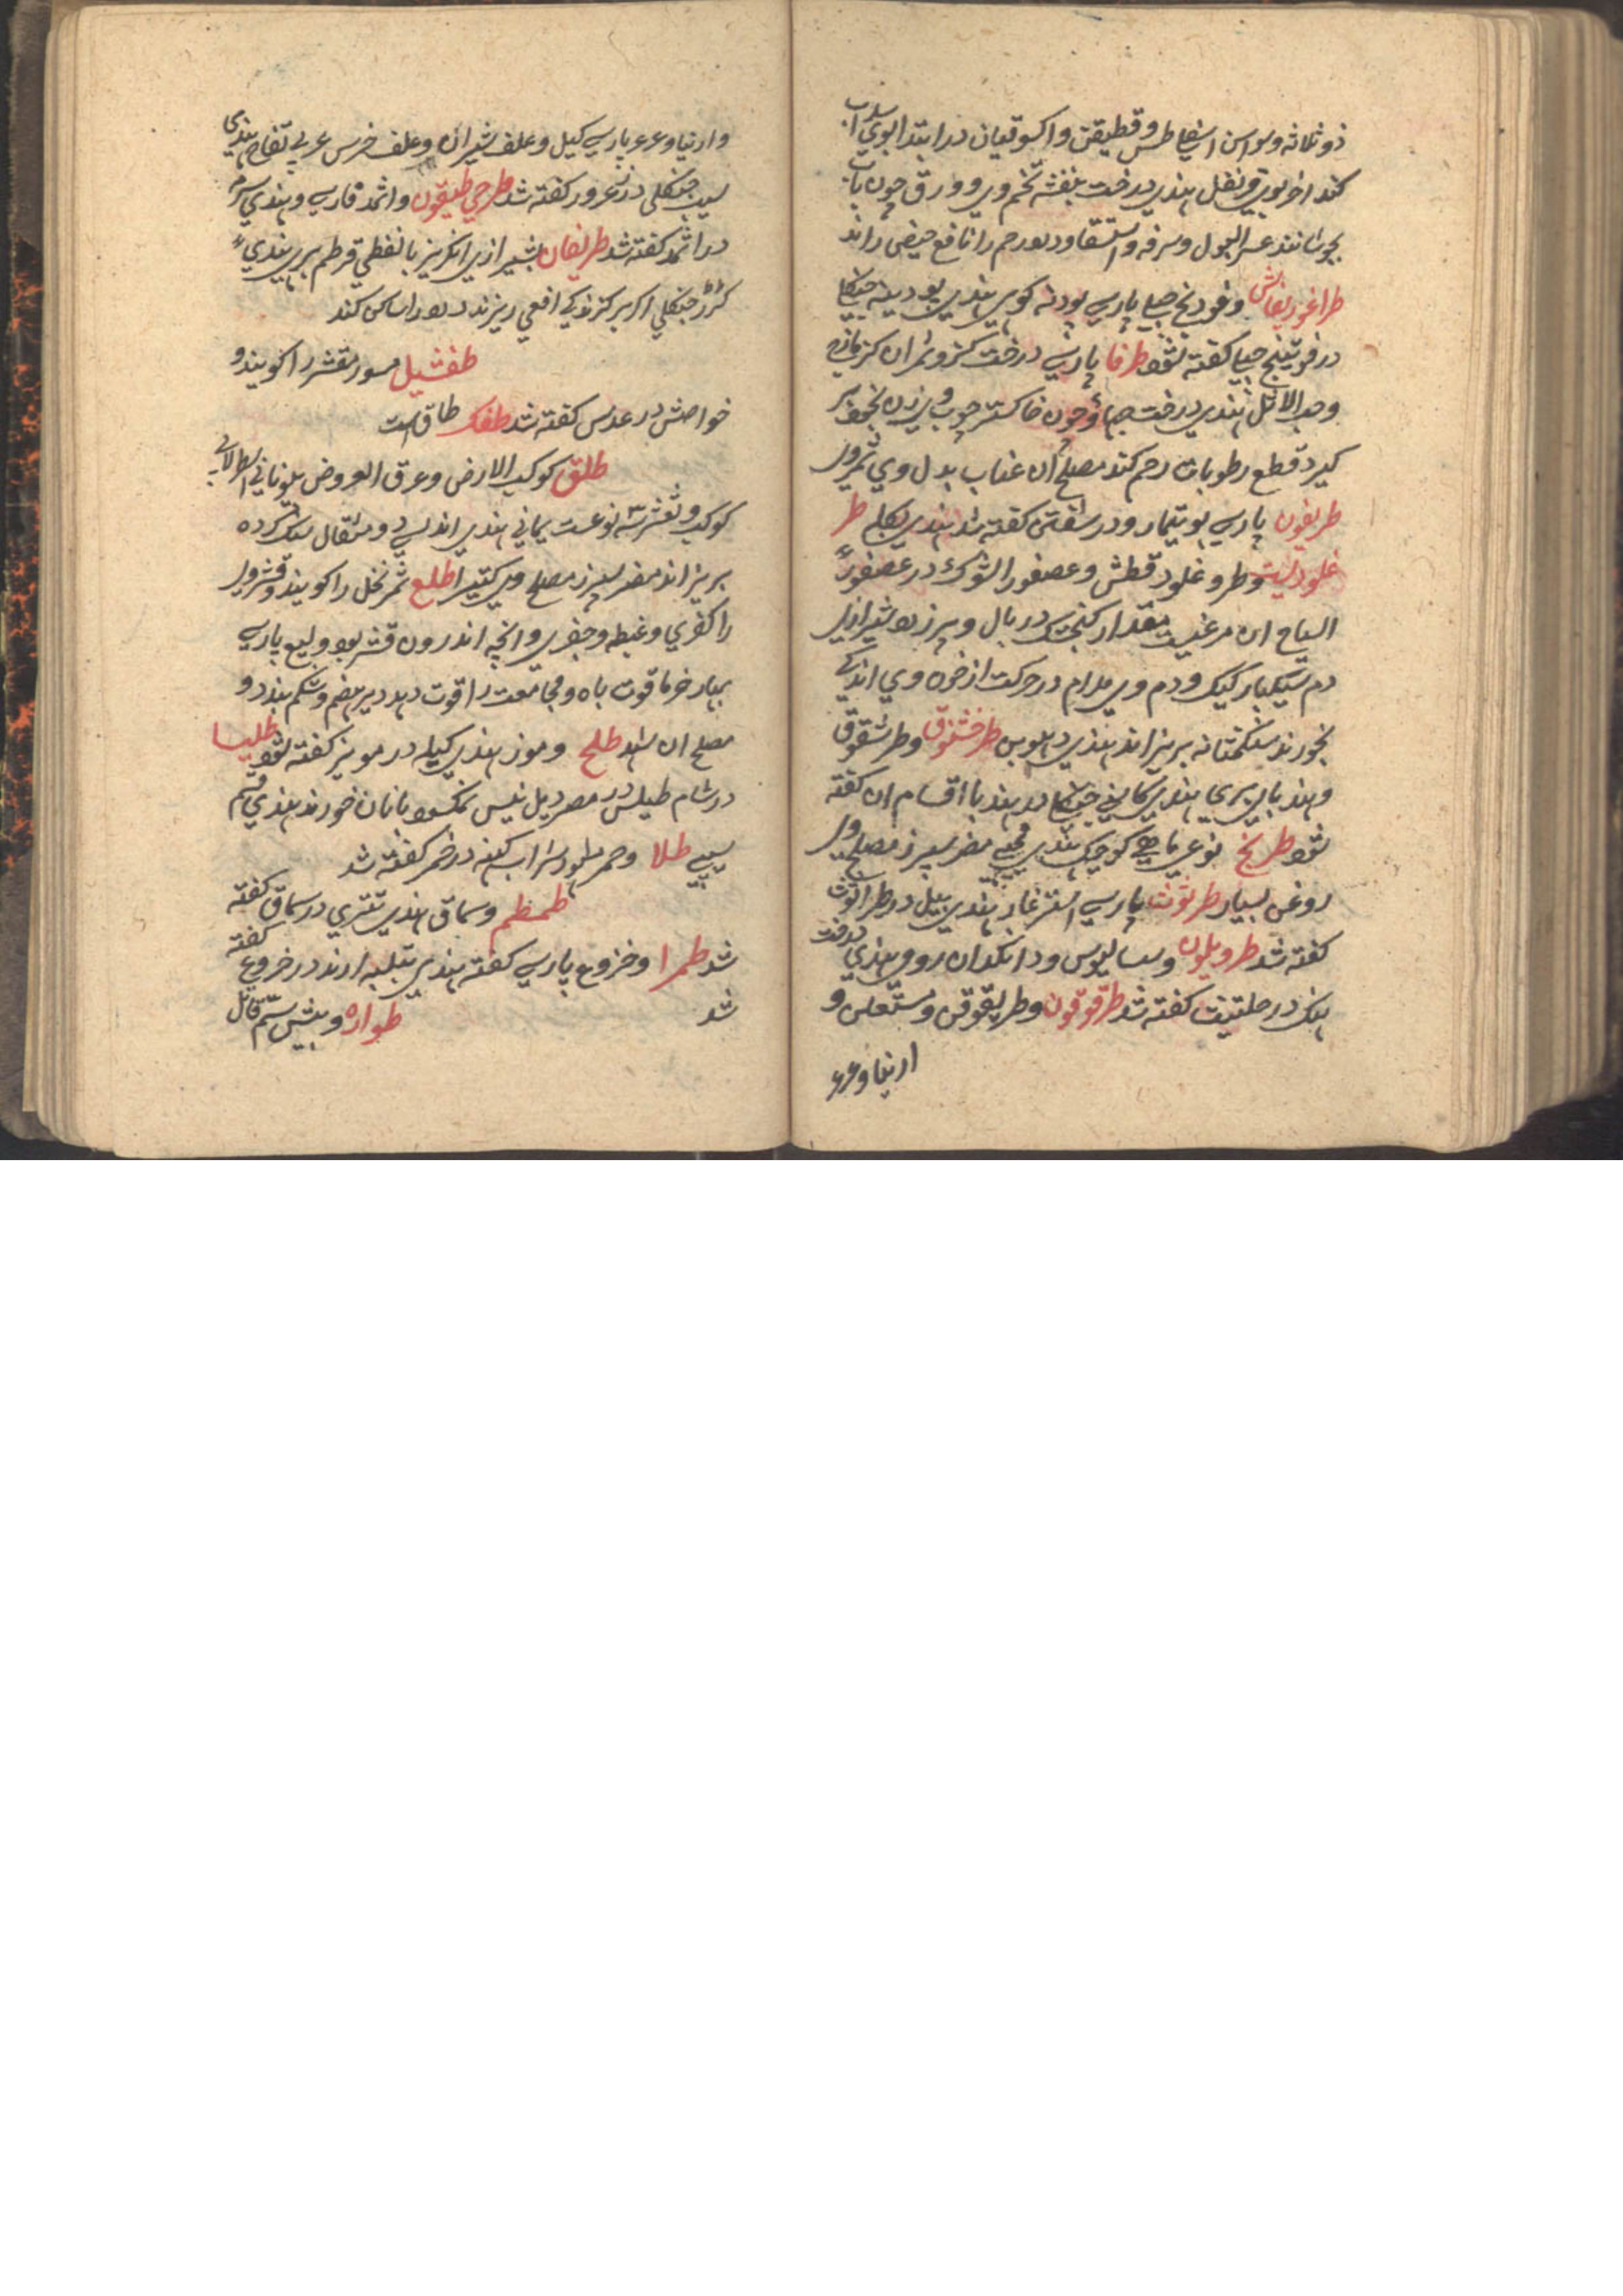 ذو ثلاثه و لو اس اسفاطس و قطیقن و اکسوقیان در ابتدا بوی سداب
کند اخر بوی قرنفل هندی درخت بنفشه تخم وی و ورق چون باب
بجوشانند عسر البول و سرفه و استسقا و درد رحم را نافع حیض راند
طراغوریغانش و فودنج جبلی پارسی پودنه کوهی هندی پودینه جنگلی
در فوتینج جبلی کفته شود طرفا پارسی درخت کز و ثمر ان کزمازج
و حب الاثل هندی درخت جهاؤ چون خاکستر چوب وی زن بخود بر
کیرد قطع رطوبات رحم کند مصلح ان عناب بدل وی ثمر ور
طریفون پارسی بوتیمار و در شفنین کفته شد هندی بکلی طر
غلودیست و طرو غلود قطش و عصفور الشوک در عصفور
السباح ان مرغیست بمقدار کنجشک در بال وی زرد شیرازی
دم سیکبار کیک و دم وی مدام در حرکت از خون وی اندکی
بخورند سنک مثانه بریزاند هندی طرخشقوق و طرشقوق
و هندبای بری هندی کاسنی جنگلی در هندبا اقسام ان کفته
شود طریخ نوعی ماهی کوچک هندی مضر سپرز مصلح ور
روغن بسیار طرثوث پارسی اشترغاز هندی بیل در طراثیث
کفته شد طرویلون و سسالیوس و دانکدان رومی هندی درخت
هنک در حلتیت کفته شد طرقوقون و طریقوقن و مستعلی و
ارنیا و عرعر
و ارنیا و عرعر پارسی کیل و علف شیران و علف خرس عربی تفاح هندی
سیب جنگلی در زعرور کفته شد طرحی طیقون و اثمد فارسی و هندی سرمه
در اثمد کفته شد طریفان بشیرازی انکریز بالنفطی قرطم بری هندی
کرر جنگلی اکر بر کزندکی افعی ریزند درد را ساکن کند
طفشیل مسور مقشر را کویند و
خواصش در عدس کفته شد طفک طاق است
طلق کوکب الارض و عرق العروض بیونانی
کوکب و نوعست یمانی هندی اندلسی دو مثقال
بریزاند مضر سپرز مصلح وی کتیرا طلع ثمر نخل را کویند و قشر ور
را کفری و غیطه و جفری و انچه اندرون قشر بود ولیع پارسی
بهار خرما قوت باه و مجامعت را قوت دهد دیر هضم و شکم بندد و
مصلح ان شهد طلح و موز هندی کیله در مویز کفته شود طلیسا
در شام طیلس در مصر دیل نیس نمکسود بانان خورند هندی قسم
سیپی طلا و خمر شراب کهنه در خمر کفته شد
طمطم و سماق هندی تتری در سماق کفته
شد طمرا و خروع پارسی کفته هندی ارند در خروع کفته
شد طواره و بیش سم قاتل